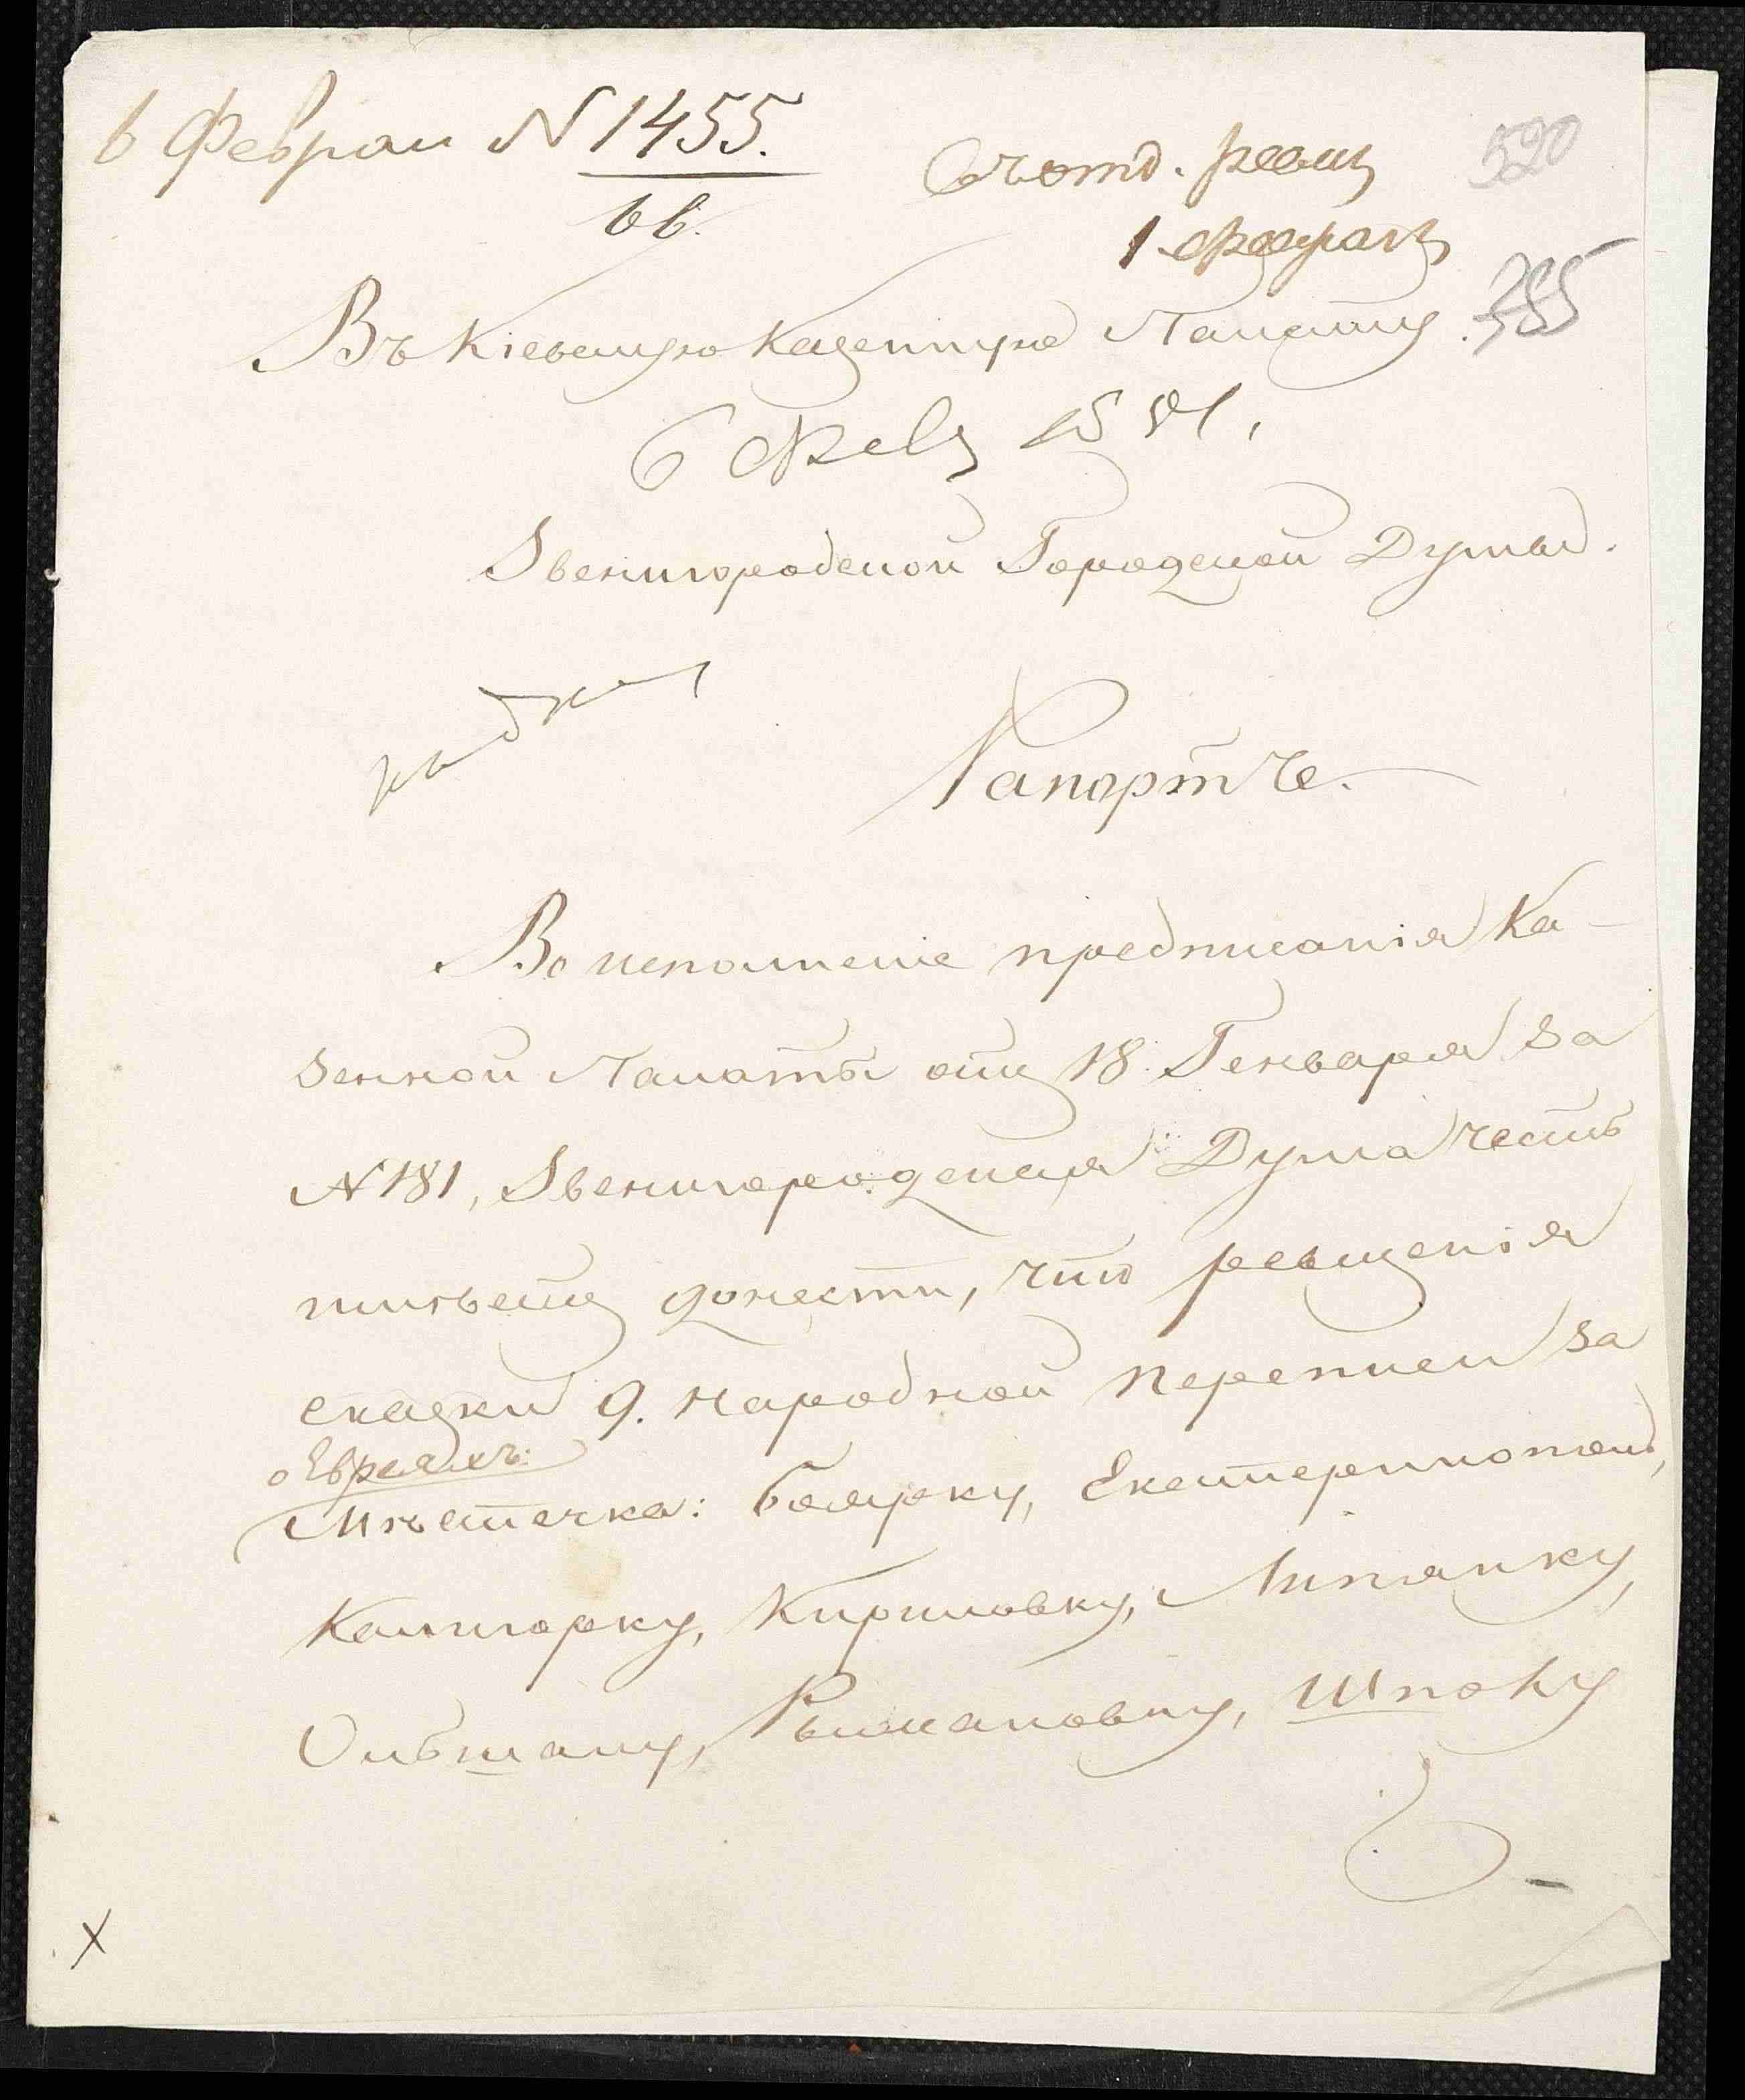 6 Феврал N 1455.
520
1 Февраля
285
Въ Кіевскую Казенную Палату.
6 Фев 1851,
Звенигородской Городской Думы.
Рапортъ.
Во исполненіе предписанія Ка-
зенной Палаты отъ 18 Генваря за
N 181, Звенигородская Дума честь
имѣетъ донести, что ревизскія
сказки 9. народной переписи за
о Евреяхъ:
Мѣстечка: Боярку, Екатеринополь,
Калигорку, Кириловку, Липянку,
Ольшану, Рыжановку, Шполу
х